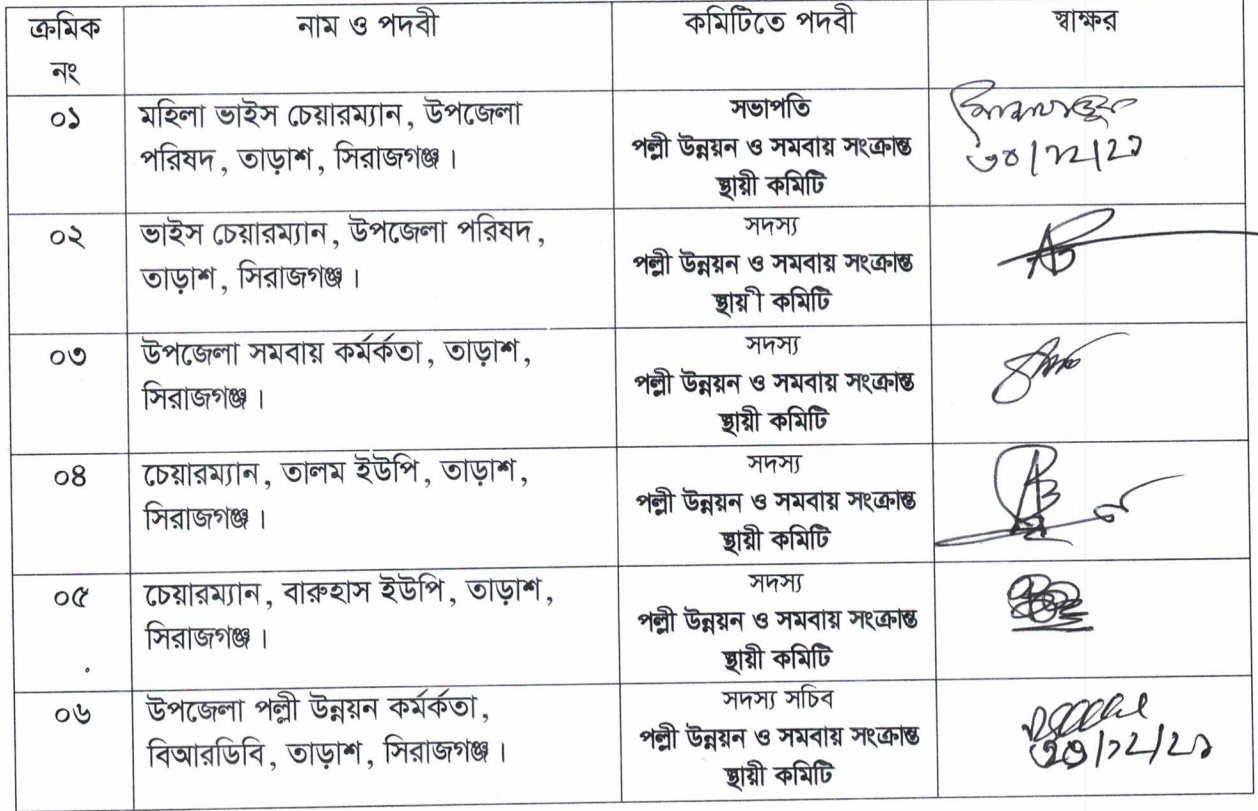 ক্রমিক নাম ও পদবী কমিটিতে পদবী স্বাক্ষর
নং
০১ মহিলা ভাইস চেয়ারম্যান, উপজেলা সভাপতি
পরিষদ, তাড়াশ, সিরাজগঞ্জ। পল্লী উন্নয়ন ও সমবায় সংক্রান্ত
স্থায়ী কমিটি
০২ ভাইস চেয়ারম্যান, উপজেলা পরিষদ, সদস্য
তাড়াশ, সিরাজগঞ্জ। পল্লী উন্নয়ন ও সমবায় সংক্রান্ত
স্থায়ী কমিটি
০৩ উপজেলা সমবায় কর্মর্কতা, তাড়াশ, সদস্য
সিরাজগঞ্জ। পল্লী উন্নয়ন ও সমবায় সংক্রান্ত
স্থায়ী কমিটি
০৪ চেয়ারম্যান, তালম ইউপি, তাড়াশ, সদস্য
সিরাজগঞ্জ। পল্লী উন্নয়ন ও সমবায় সংক্রান্ত
স্থায়ী কমিটি
০৫ চেয়ারম্যান, বারুহাস ইউপি, তাড়াশ, সদস্য
সিরাজগঞ্জ। পল্লী উন্নয়ন ও সমবায় সংক্রান্ত
স্থায়ী কমিটি
০৬ উপজেলা পল্লী উন্নয়ন কর্মর্কতা, সদস্য সচিব
বিআরডিবি, তাড়াশ, সিরাজগঞ্জ। পল্লী উন্নয়ন ও সমবায় সংক্রান্ত
স্থায়ী কমিটি